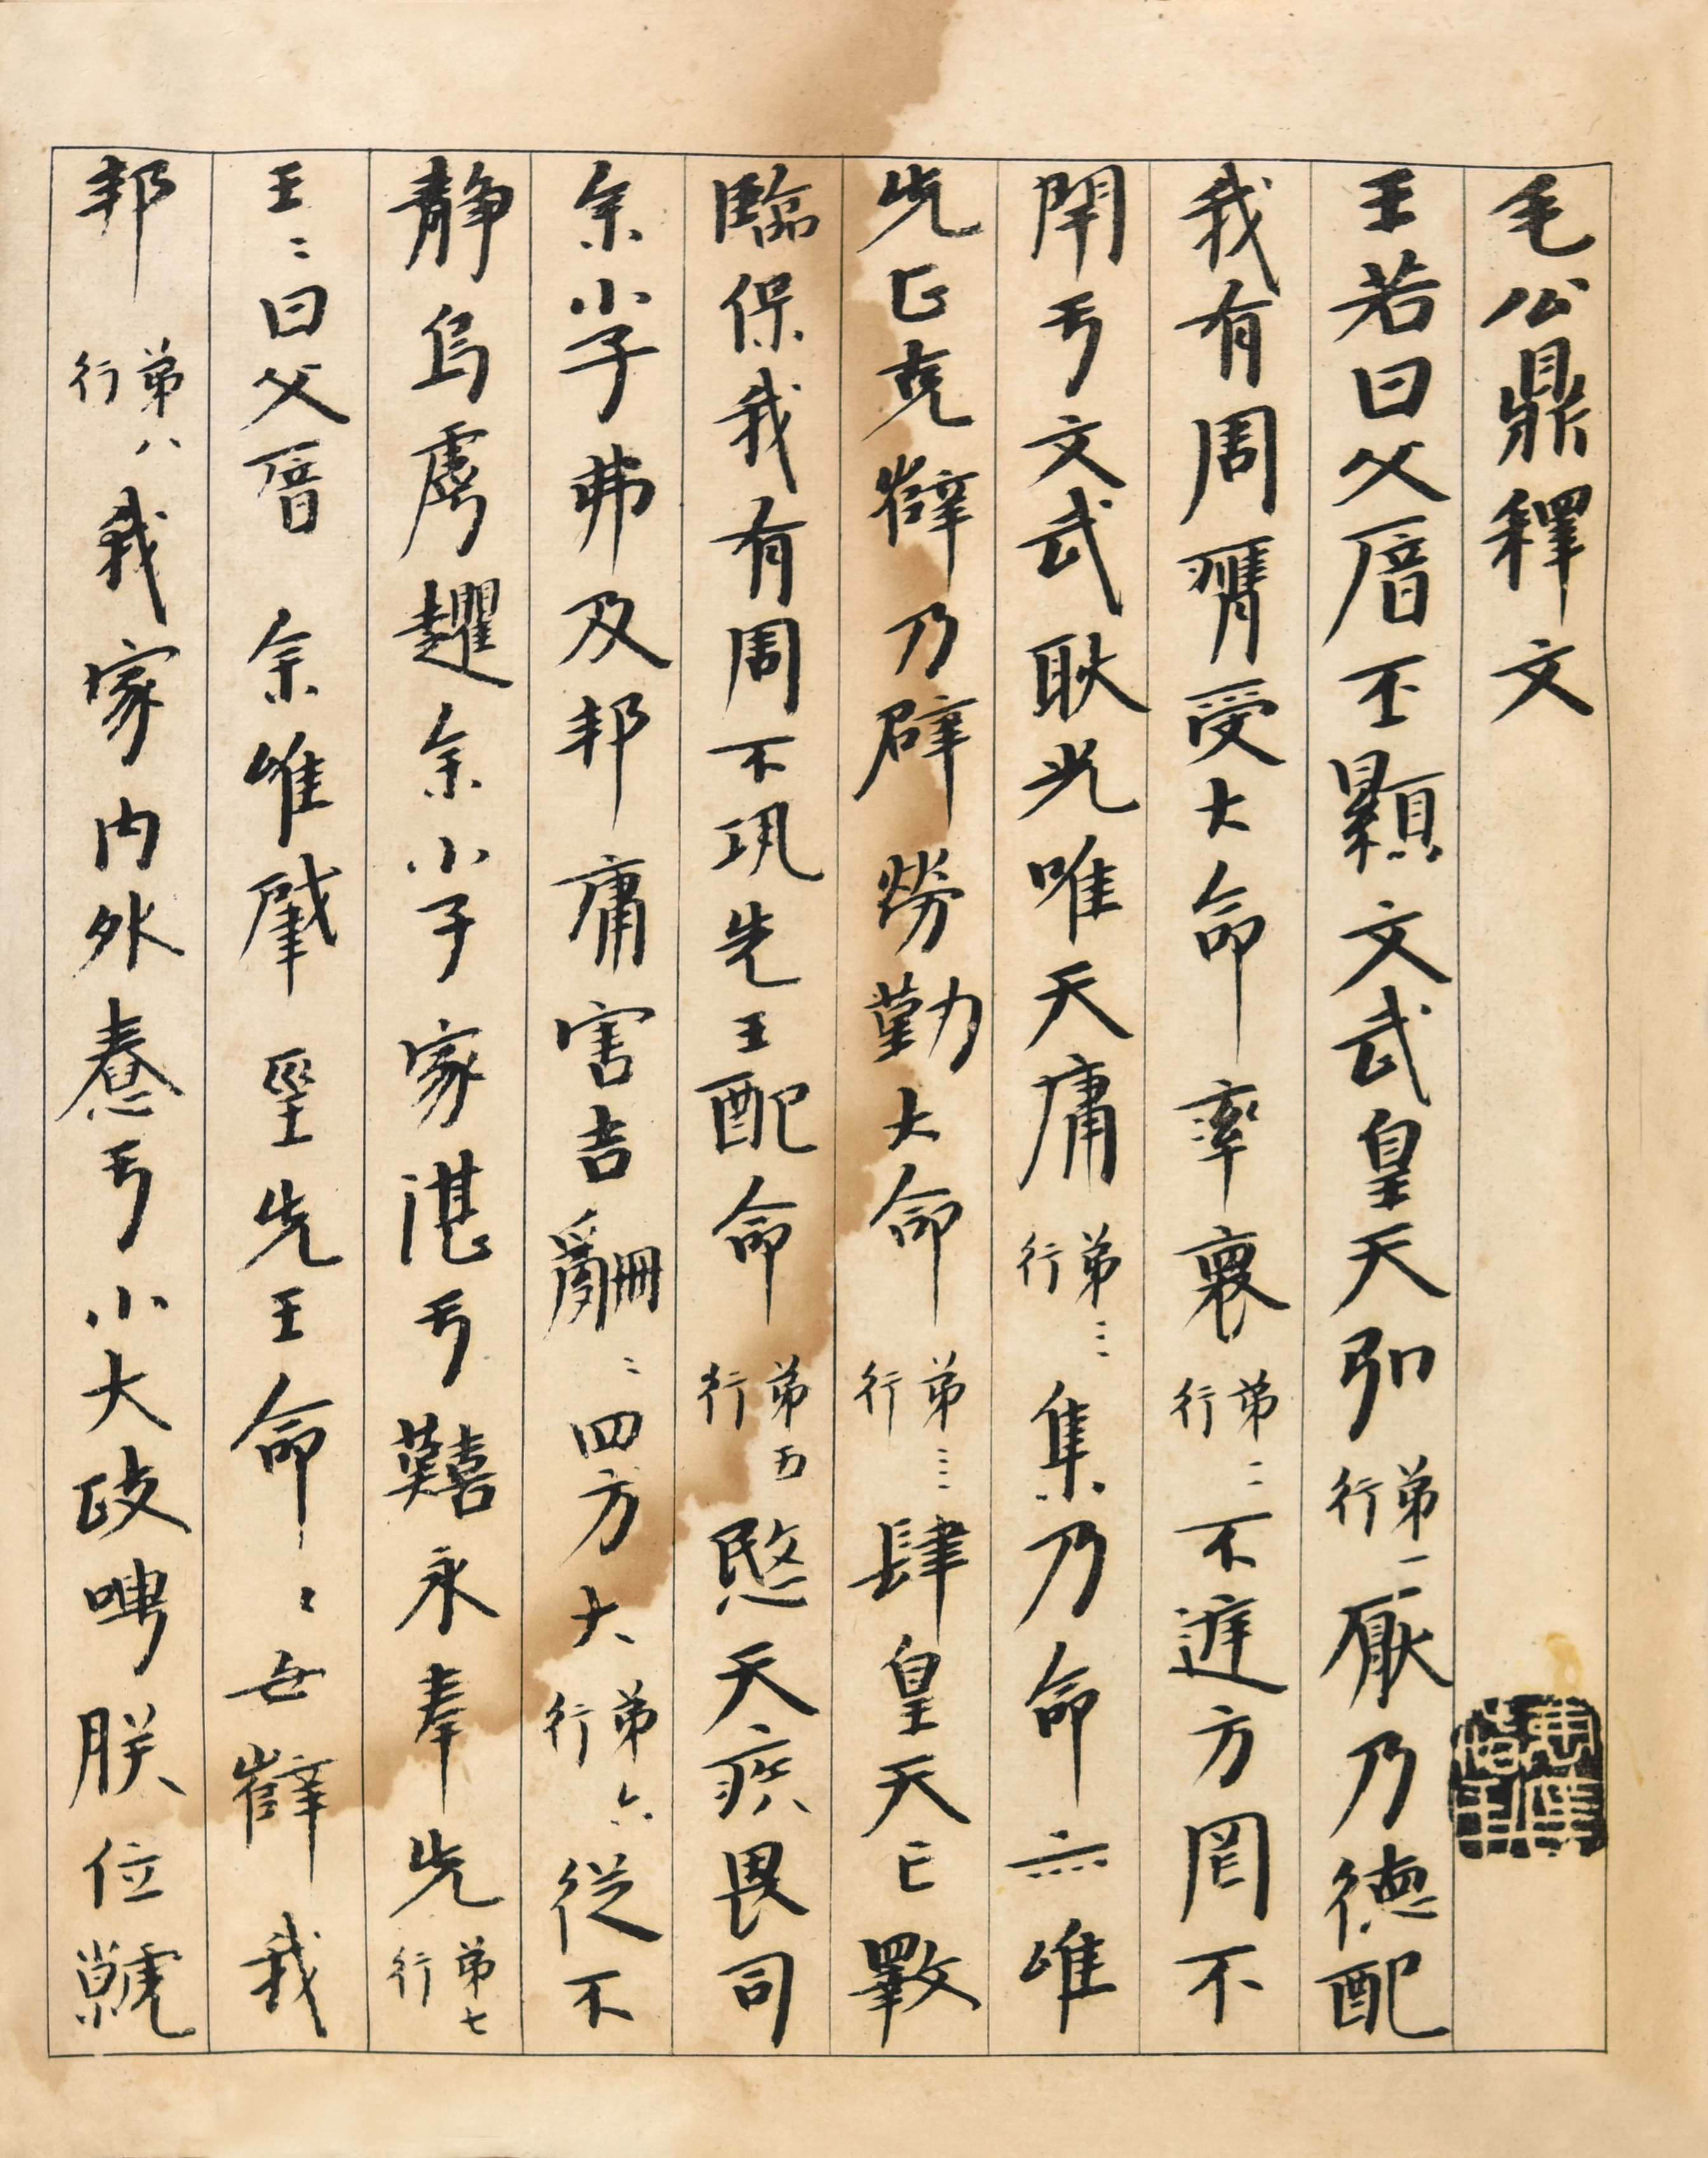 毛公鼎釋文
王若曰父厝不顯文武皇天引弟一行厭乃德配
我有周膺受大命率褱弟二行不遟方罔不
閈丂文武耿光唯天庸弟三行集乃命亡唯
先正克辥乃辟勞勤大命弟四行肆皇天亡斁
臨保我有周不巩先王配命弟五行愍天疾畏司
余小子弗及邦庸害吉𤔲〻四方大弟六行從不
靜烏虖趯余小子家湛丂囏永奉先弟七行
王〻曰父厝余唯肈巠先王命〻女辥我
邦弟八行我家內外惷丂小大政甹朕位虩